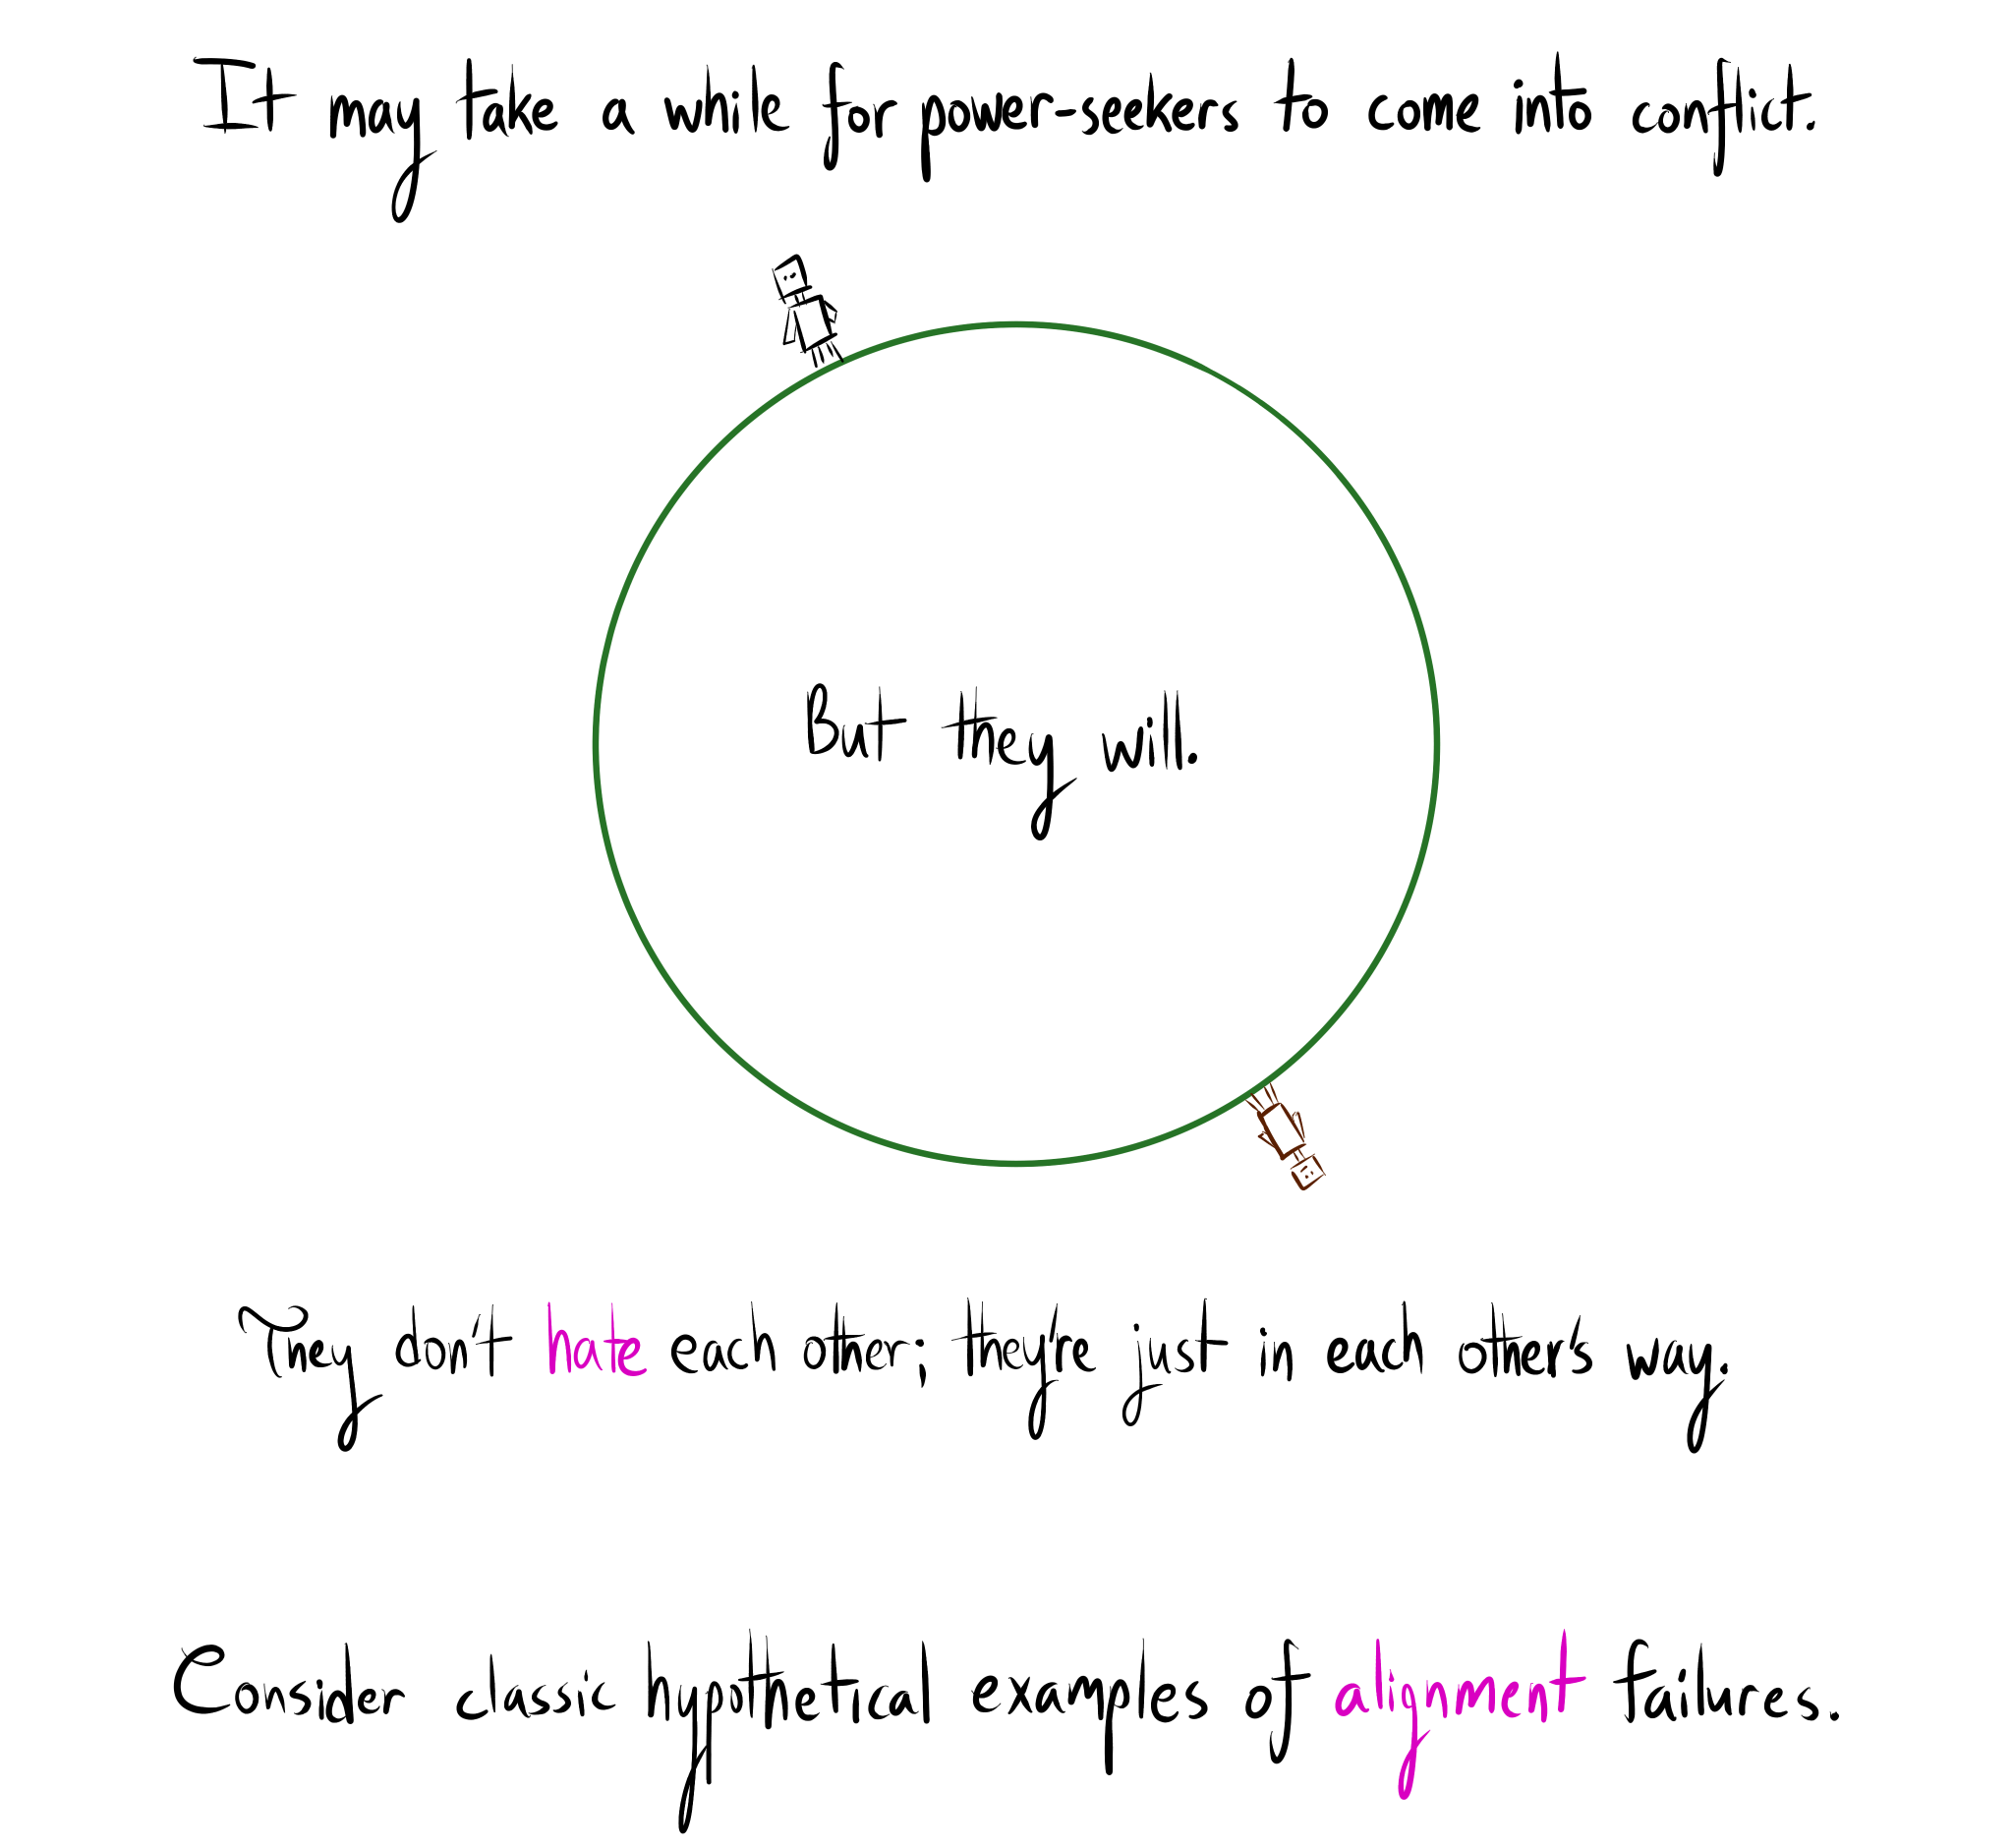 It may take a while for power-seekers to come into conflict.
But they will.
They don't hate each other; they're just in each other's way.
Consider classic hypothetical examples of alignment failures.